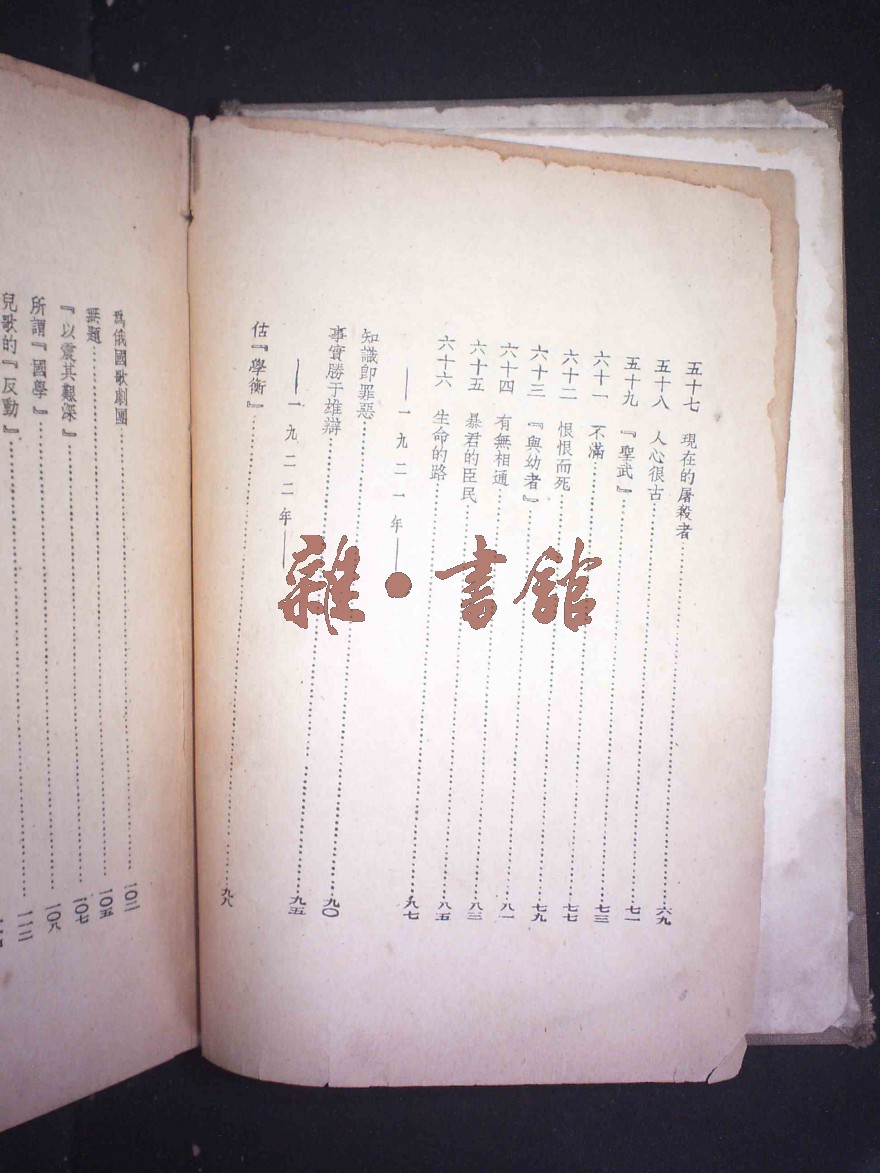 五十七 現在的屠殺者……六九
五十八 人心很古……七一
五十九 『聖武』……七三
六十一 不滿……七七
六十二 恨恨而死……七九
六十三 『與幼者』……八一
六十四 有無相通……八三
六十五 暴君的臣民……八五
六十六 生命的路……九七
——一九二一年——
知識即罪惡……九〇
事實勝于雄辯……九五
——一九二二年——
估『學衡』……九八
爲俄國歌劇團……一〇二
無題……一〇五
『以震其艱深』……一〇七
所謂『國學』……一〇八
兒歌的『反動』……一一二
雜·書館